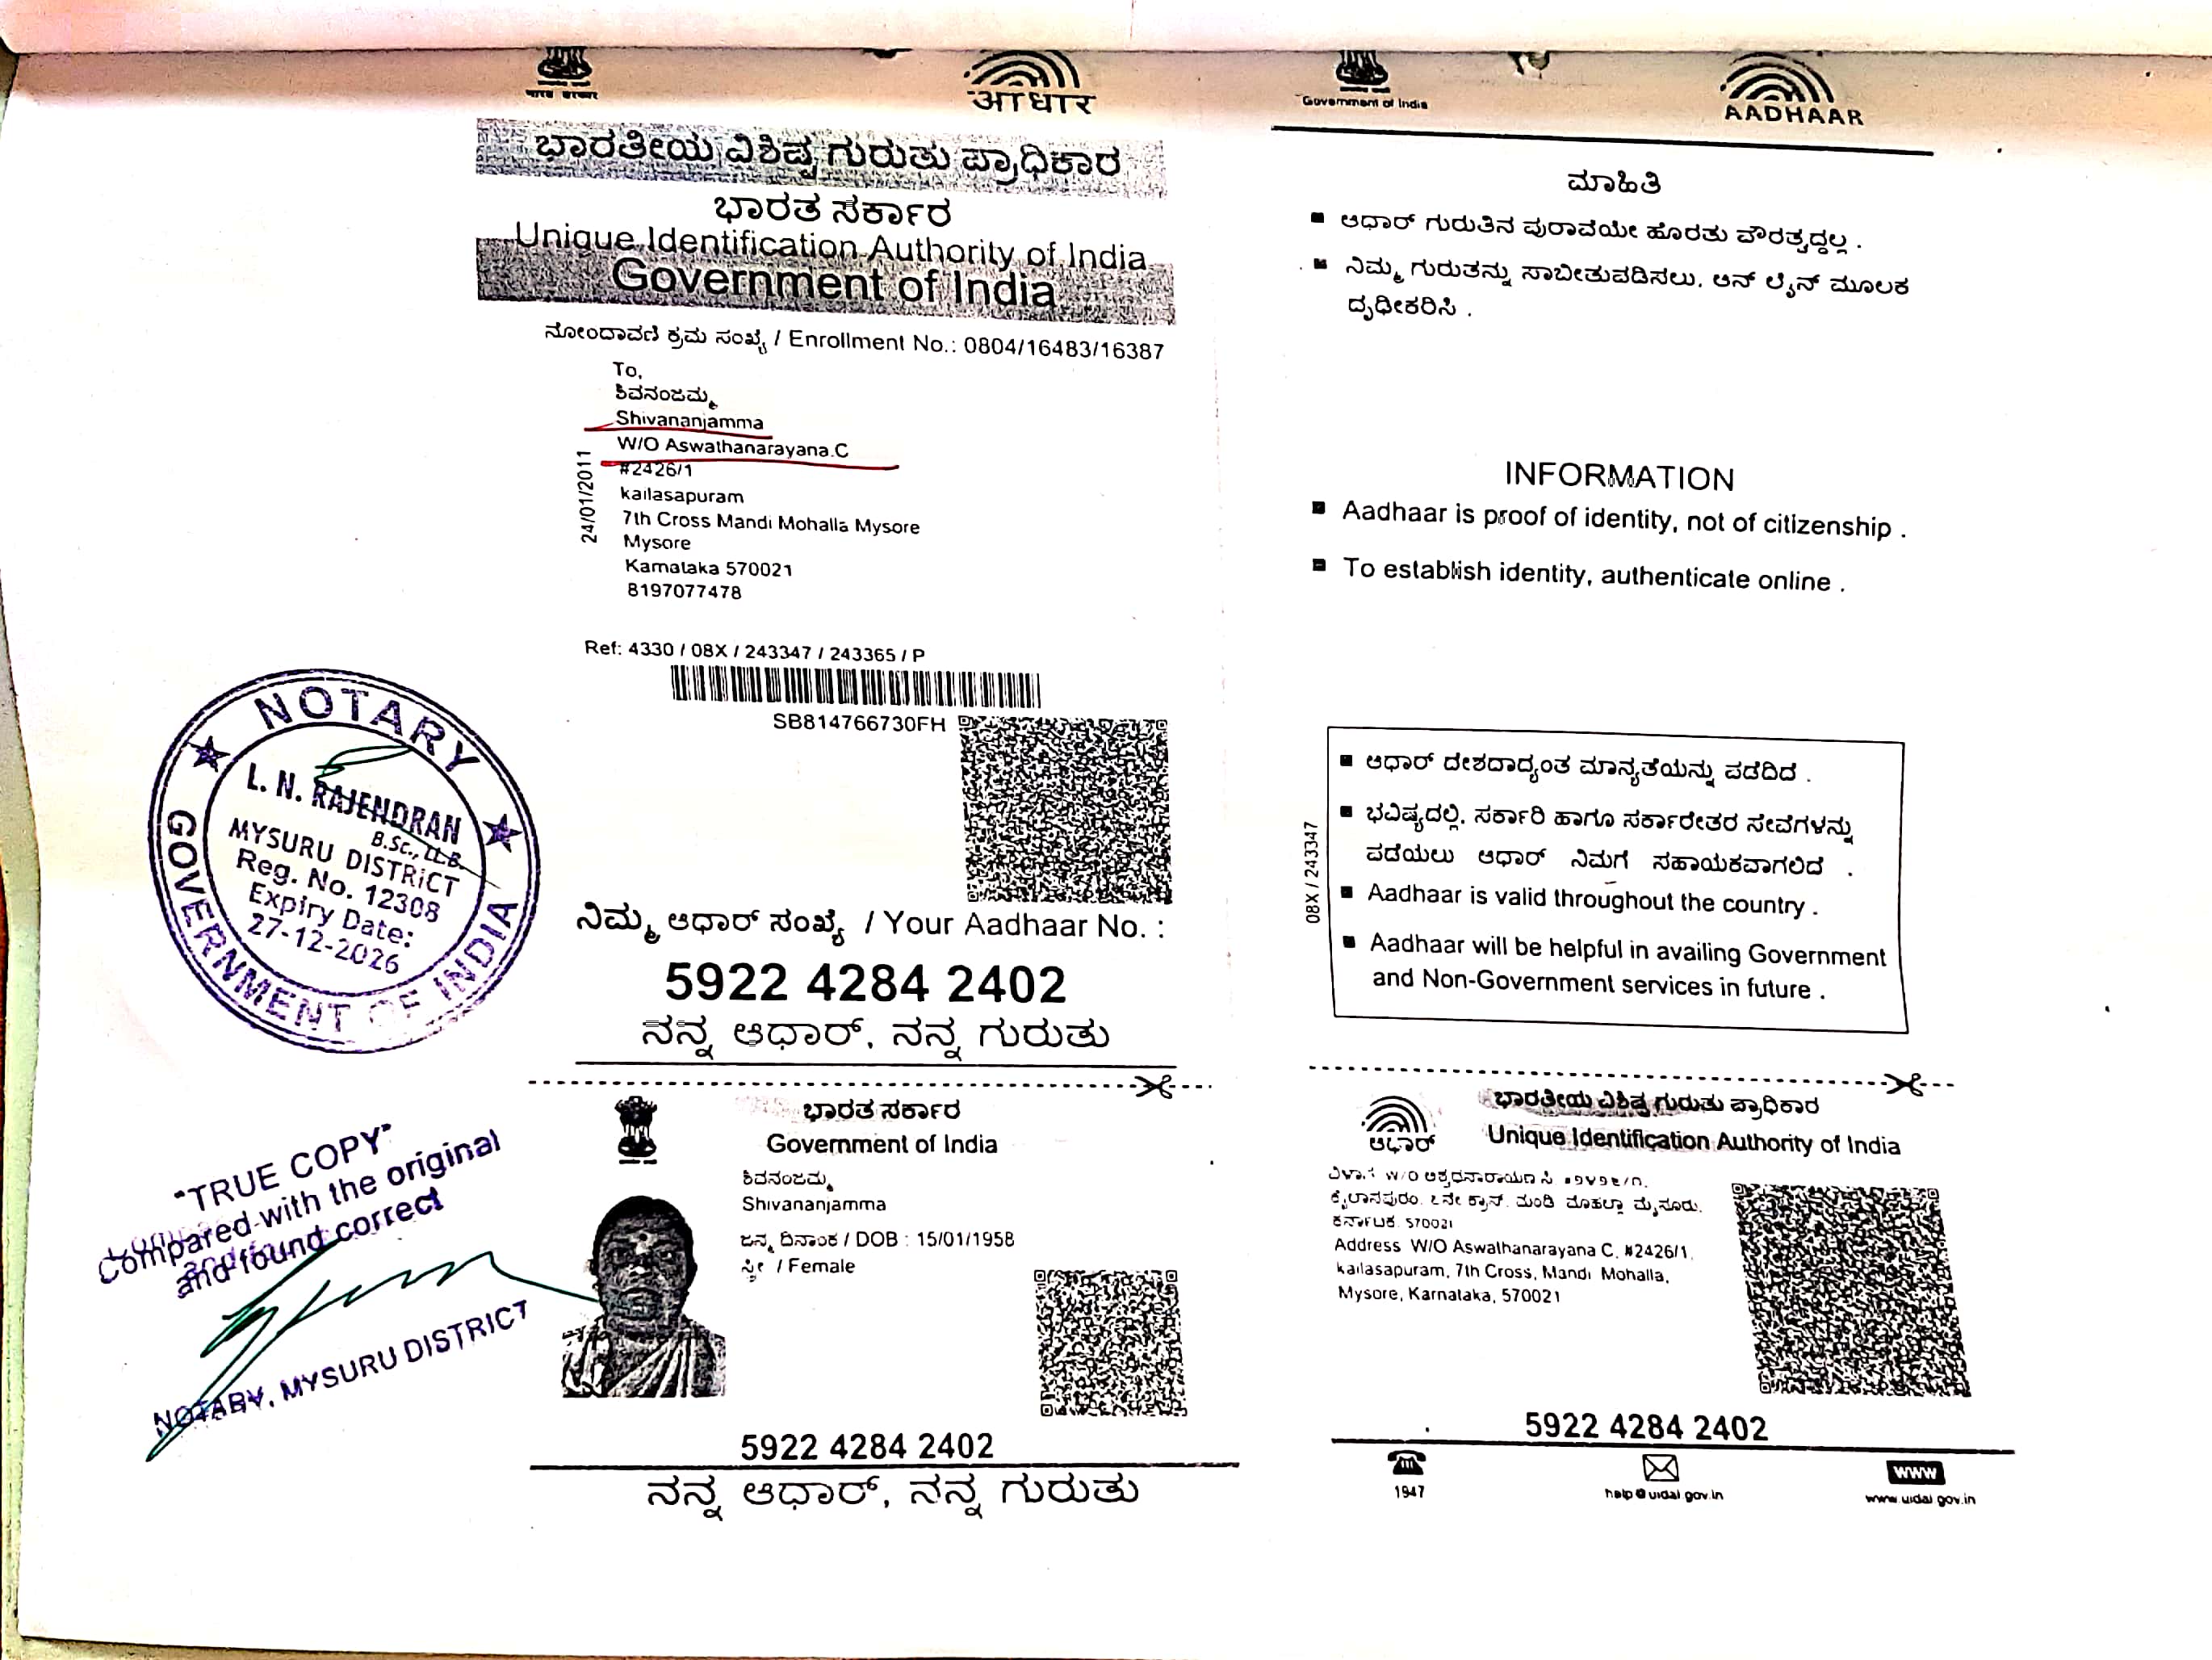 भारत सरकार
आधार
ಭಾರತೀಯ ವಿಶಿಷ್ಟ ಗುರುತು ಪ್ರಾಧಿಕಾರ
ಭಾರತ ಸರ್ಕಾರ
Unique Identification Authority of India
Government of India
ನೋಂದಾವಣಿ ಕ್ರಮ ಸಂಖ್ಯೆ / Enrollment No.: 0804/16483/16387
To,
ಶಿವನಂಜಮ್ಮ
Shivananjamma
W/O Aswathanarayana.C
#2426/1
kailasapuram
7th Cross Mandi Mohalla Mysore
Mysore
Karnataka 570021
8197077478
24/01/2011
Ref: 4330 / 08X / 243347 / 243365 / P
SB814766730FH
ನಿಮ್ಮ ಆಧಾರ್ ಸಂಖ್ಯೆ / Your Aadhaar No. :
5922 4284 2402
ನನ್ನ ಆಧಾರ್, ನನ್ನ ಗುರುತು
NOTARY
L. N. RAJENDRAN
B.Sc., LL.B
MYSURU DISTRICT
Reg. No. 12308
Expiry Date:
27-12-2026
GOVERNMENT OF INDIA
"TRUE COPY"
Compared with the original
and found correct
NOTARY, MYSURU DISTRICT
ಭಾರತ ಸರ್ಕಾರ
Government of India
ಶಿವನಂಜಮ್ಮ
Shivananjamma
ಜನ್ಮ ದಿನಾಂಕ / DOB : 15/01/1958
ಸ್ತ್ರೀ / Female
5922 4284 2402
ನನ್ನ ಆಧಾರ್, ನನ್ನ ಗುರುತು
Government of India
AADHAAR
ಮಾಹಿತಿ
■ ಆಧಾರ್ ಗುರುತಿನ ಪುರಾವೆಯೇ ಹೊರತು ಪೌರತ್ವದ್ದಲ್ಲ .
■ ನಿಮ್ಮ ಗುರುತನ್ನು ಸಾಬೀತುಪಡಿಸಲು, ಆನ್ ಲೈನ್ ಮೂಲಕ
ದೃಢೀಕರಿಸಿ .
INFORMATION
■ Aadhaar is proof of identity, not of citizenship .
■ To establish identity, authenticate online .
08X / 243347
■ ಆಧಾರ್ ದೇಶದಾದ್ಯಂತ ಮಾನ್ಯತೆಯನ್ನು ಪಡೆದಿದೆ .
■ ಭವಿಷ್ಯದಲ್ಲಿ, ಸರ್ಕಾರಿ ಹಾಗೂ ಸರ್ಕಾರೇತರ ಸೇವೆಗಳನ್ನು
ಪಡೆಯಲು ಆಧಾರ್ ನಿಮಗೆ ಸಹಾಯಕವಾಗಲಿದೆ .
■ Aadhaar is valid throughout the country .
■ Aadhaar will be helpful in availing Government
and Non-Government services in future .
ಆಧಾರ್
ಭಾರತೀಯ ವಿಶಿಷ್ಟ ಗುರುತು ಪ್ರಾಧಿಕಾರ
Unique Identification Authority of India
ವಿಳಾಸ W/O ಅಶ್ವಥನಾರಾಯಣ ಸಿ, #೨೪೨೬/೧,
ಕೈಲಾಸಪುರಂ, ೭ನೇ ಕ್ರಾಸ್, ಮಂಡಿ ಮೊಹಲ್ಲಾ ಮೈಸೂರು,
ಕರ್ನಾಟಕ, 570021
Address W/O Aswathanarayana C, #2426/1,
kailasapuram, 7th Cross, Mandi Mohalla,
Mysore, Karnataka, 570021
5922 4284 2402
1947
help@uidai.gov.in
www
www.uidai.gov.in